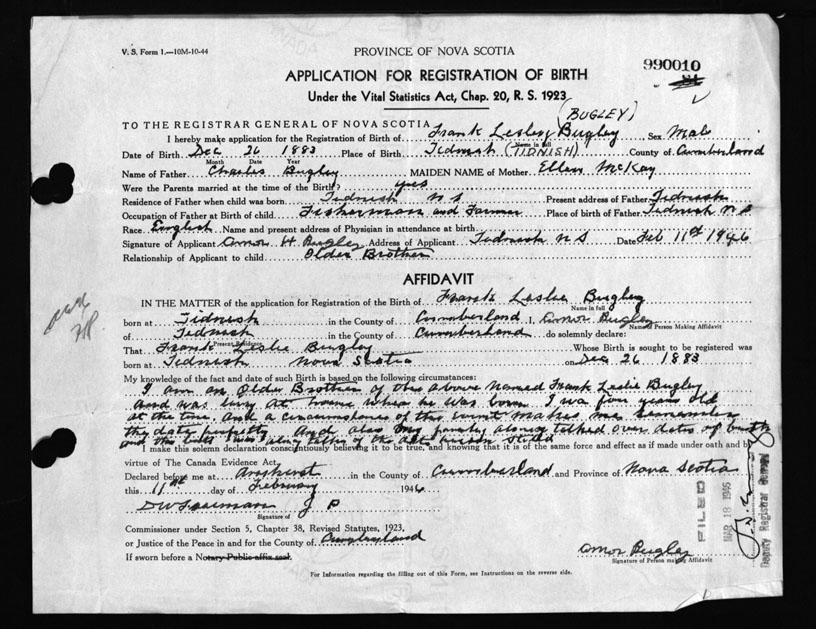 V. S. Form 1.—10M-10-44
PROVINCE OF NOVA SCOTIA
990010
APPLICATION FOR REGISTRATION OF BIRTH
Under the Vital Statistics Act, Chap. 20, R. S. 1923
(BUGLEY)
TO THE REGISTRAR GENERAL OF NOVA SCOTIA
I hereby make application for the Registration of Birth of Frank Lesley Bugley Sex Male
Name in full
Date of Birth Dec 26 1883 Place of Birth Tidnish (TIDNISH) County of Cumberland
Month Date Year
Name of Father Charles Bugley MAIDEN NAME of Mother Ellen McKay
Were the Parents married at the time of the Birth? yes
Residence of Father when child was born Tidnish N S Present address of Father Tidnish
Occupation of Father at Birth of child Fisherman and Farmer Place of birth of Father Tidnish N S
Race English Name and present address of Physician in attendance at birth
Signature of Applicant Amor H. Bugley Address of Applicant Tidnish N S Date Feb 11th 1946
Relationship of Applicant to child Older Brother
AFFIDAVIT
IN THE MATTER of the application for Registration of the Birth of Frank Leslie Bugley
Name in full
born at Tidnish in the County of Cumberland I, Amor Bugley
Name of Person Making Affidavit
of Tidnish in the County of Cumberland do solemnly declare:
Present Residence
That Frank Leslie Bugley Whose Birth is sought to be registered was
born at Tidnish Nova Scotia on Dec 26 1883
My knowledge of the fact and date of such Birth is based on the following circumstances:
I am an Older Brother of the above named Frank Leslie Bugley
and was living at home when he was born I was five years old
at the time and a circumstance of the event makes me remember
the date perfectly. And also my family always talked over dates of birth
and the
I make this solemn declaration conscientiously believing it to be true, and knowing that it is of the same force and effect as if made under oath and by
virtue of The Canada Evidence Act.
Declared before me at Amherst in the County of Cumberland and Province of Nova Scotia
this 11th day of February 1946
J P
Signature of
Commissioner under Section 5, Chapter 38, Revised Statutes, 1923,
or Justice of the Peace in and for the County of Cumberland
If sworn before a Notary Public affix seal.
Amor Bugley
Signature of Person making Affidavit
For Information regarding the filling out of this Form, see Instructions on the reverse side.
MAR 18 1946
Deputy Registrar General